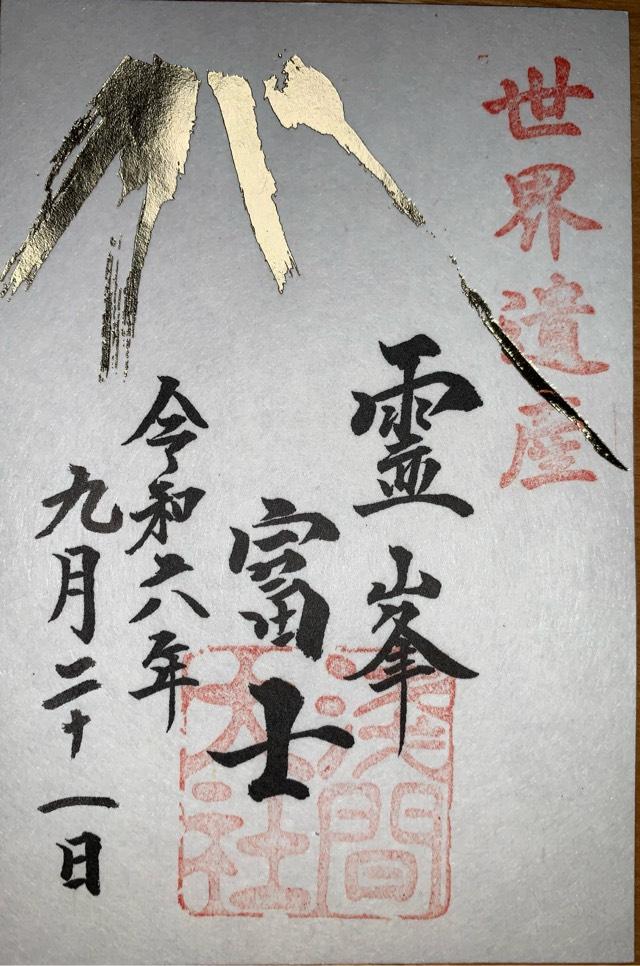 世界遺産
霊峯
富士
令和六年
九月二十一日
浅間
大社